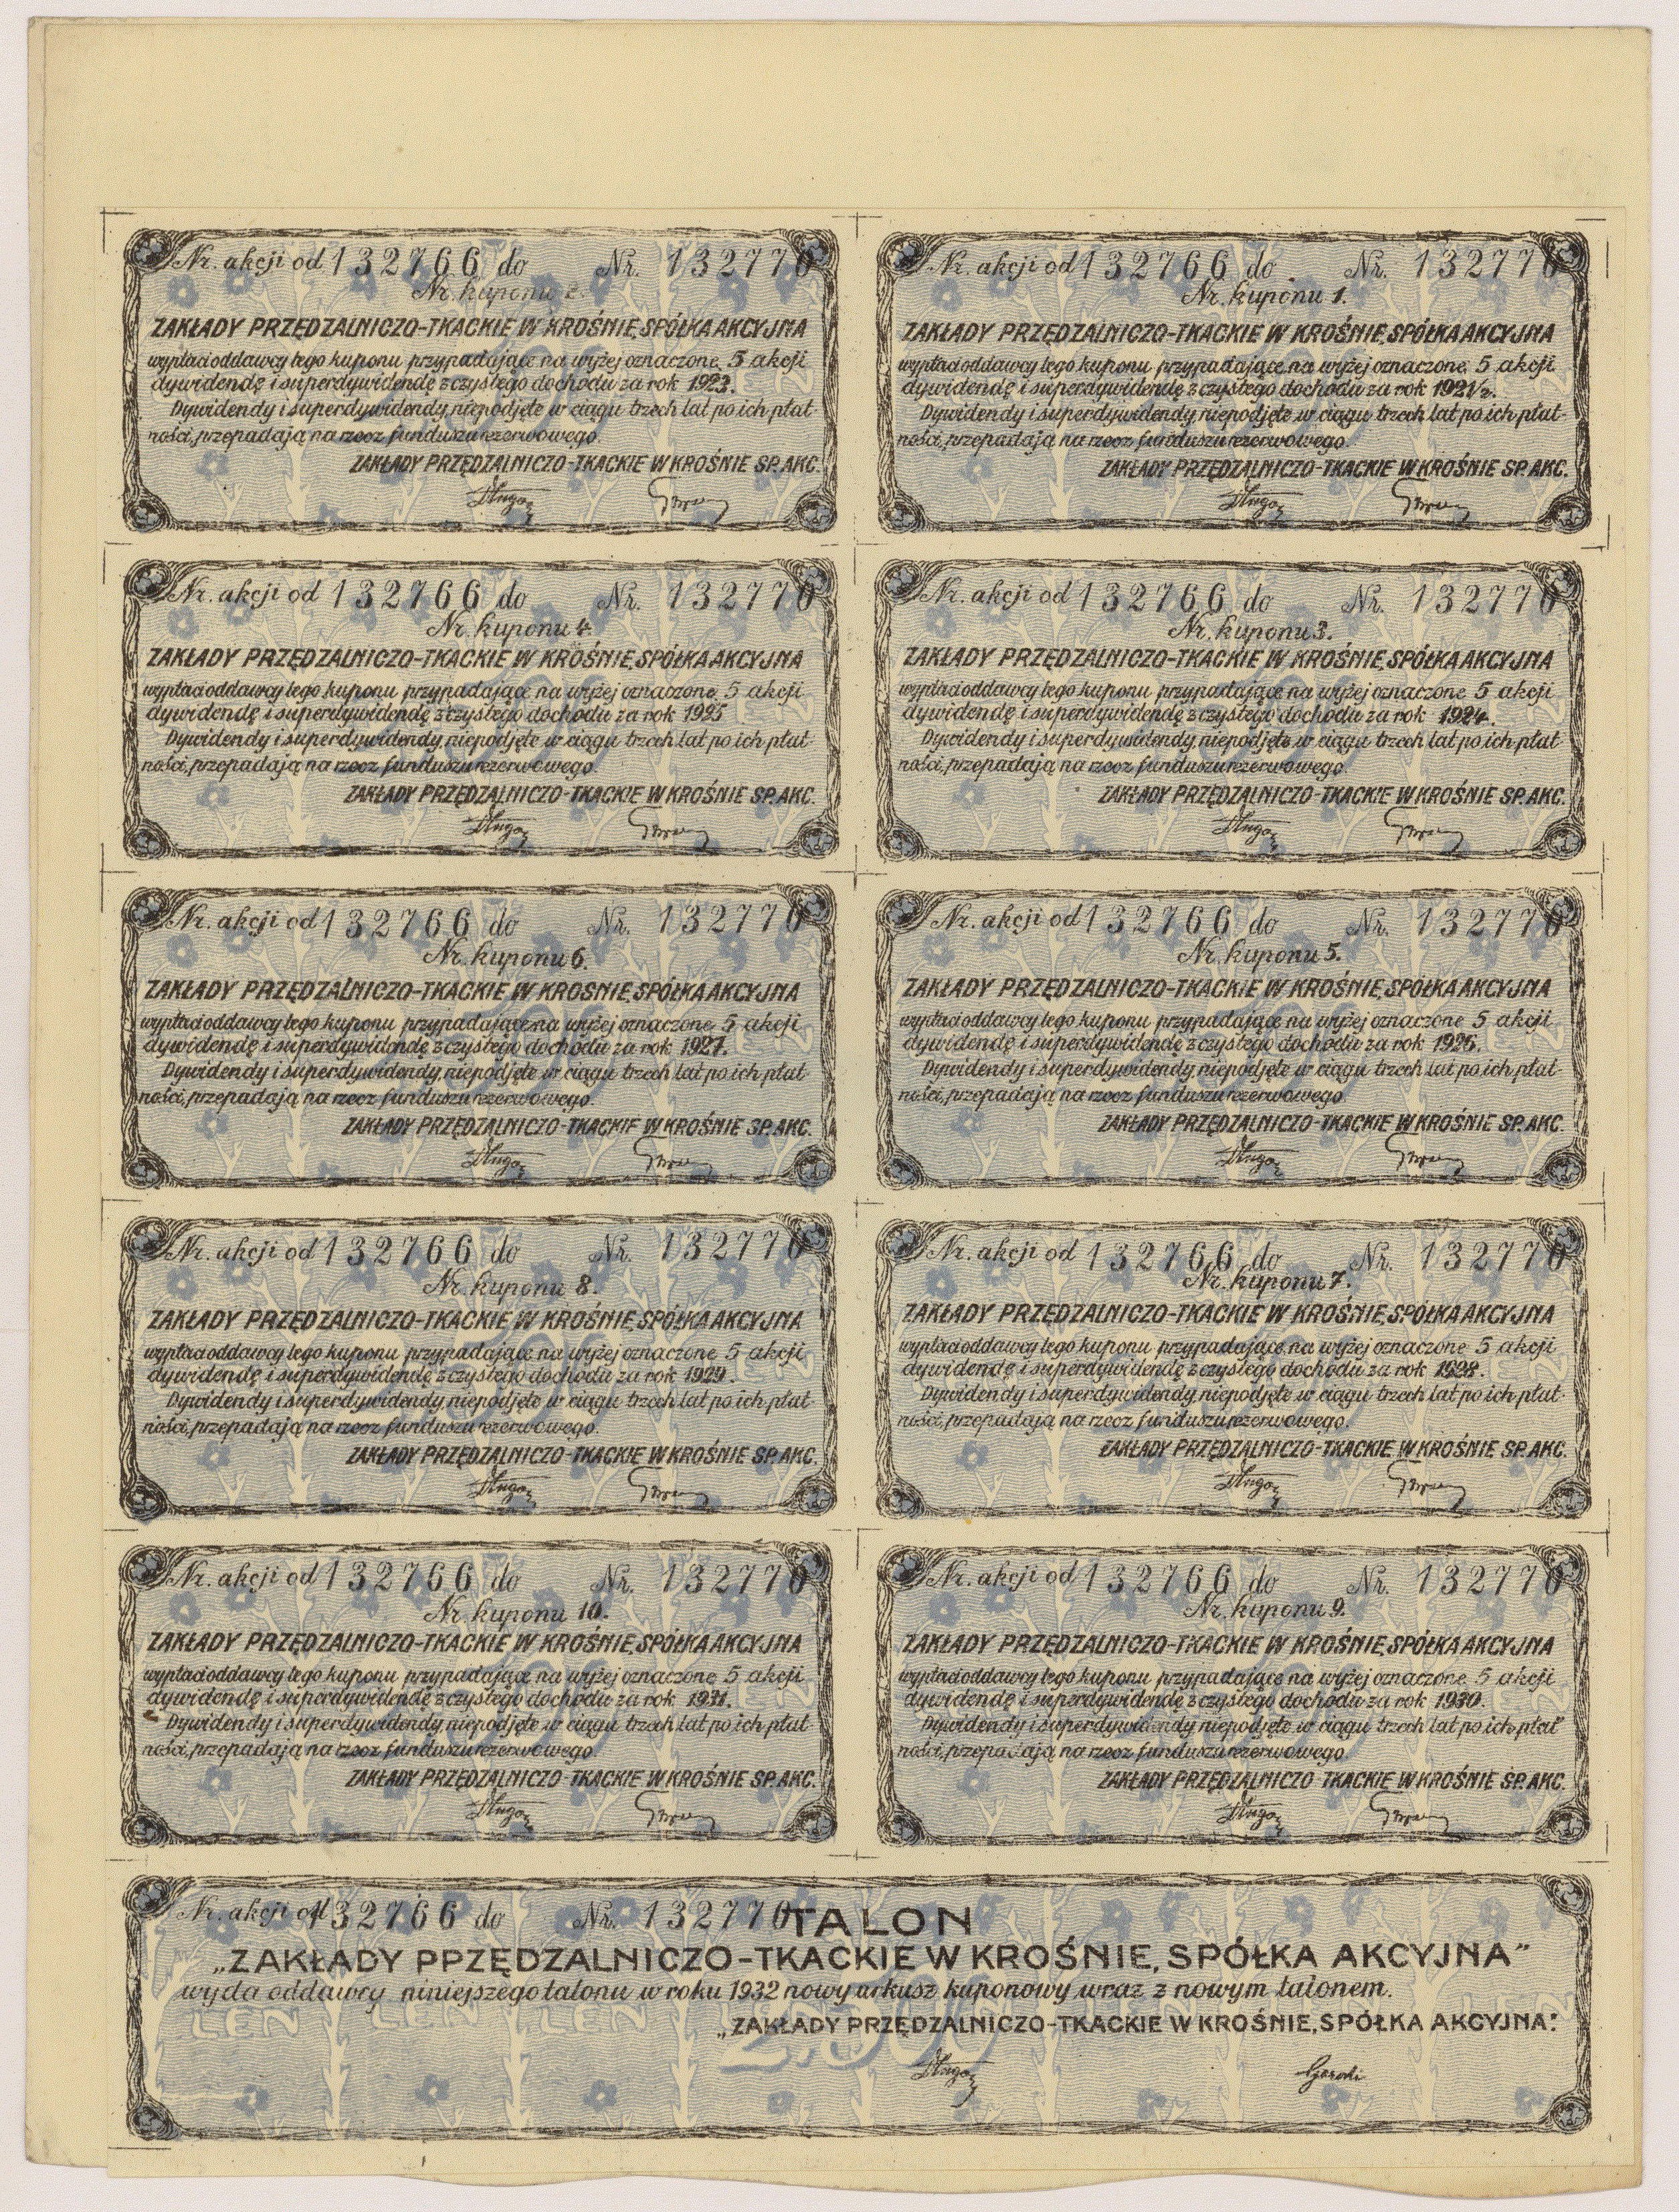 Nr. akcji od 132766 do Nr. 132770
Nr. kuponu 2.
ZAKŁADY PRZĘDZALNICZO-TKACKIE W KROŚNIE, SPÓŁKA AKCYJNA
wypłaci oddawcy tego kuponu przypadające na wyżej oznaczone 5 akcji
dywidendę i superdywidendę z czystego dochodu za rok 1923.
Dywidendy i superdywidendy, niepodjęte w ciągu trzech lat po ich płat-
ności, przepadają na rzecz funduszu rezerwowego.
ZAKŁADY PRZĘDZALNICZO-TKACKIE W KROŚNIE SP. AKC.
Nr. akcji od 132766 do Nr. 132770
Nr. kuponu 1.
ZAKŁADY PRZĘDZALNICZO-TKACKIE W KROŚNIE, SPÓŁKA AKCYJNA
wypłaci oddawcy tego kuponu przypadające na wyżej oznaczone 5 akcji
dywidendę i superdywidendę z czystego dochodu za rok 1921/2.
Dywidendy i superdywidendy, niepodjęte w ciągu trzech lat po ich płat-
ności, przepadają na rzecz funduszu rezerwowego.
ZAKŁADY PRZĘDZALNICZO-TKACKIE W KROŚNIE SP. AKC.
Nr. akcji od 132766 do Nr. 132770
Nr. kuponu 4.
ZAKŁADY PRZĘDZALNICZO-TKACKIE W KROŚNIE, SPÓŁKA AKCYJNA
wypłaci oddawcy tego kuponu przypadające na wyżej oznaczone 5 akcji
dywidendę i superdywidendę z czystego dochodu za rok 1925
Dywidendy i superdywidendy, niepodjęte w ciągu trzech lat po ich płat-
ności, przepadają na rzecz funduszu rezerwowego.
ZAKŁADY PRZĘDZALNICZO-TKACKIE W KROŚNIE SP. AKC.
Nr. akcji od 132766 do Nr. 132770
Nr. kuponu 3.
ZAKŁADY PRZĘDZALNICZO-TKACKIE W KROŚNIE, SPÓŁKA AKCYJNA
wypłaci oddawcy tego kuponu przypadające na wyżej oznaczone 5 akcji
dywidendę i superdywidendę z czystego dochodu za rok 1924.
Dywidendy i superdywidendy, niepodjęte w ciągu trzech lat po ich płat-
ności, przepadają na rzecz funduszu rezerwowego.
ZAKŁADY PRZĘDZALNICZO-TKACKIE W KROŚNIE SP. AKC.
Nr. akcji od 132766 do Nr. 132770
Nr. kuponu 6.
ZAKŁADY PRZĘDZALNICZO-TKACKIE W KROŚNIE, SPÓŁKA AKCYJNA
wypłaci oddawcy tego kuponu przypadające na wyżej oznaczone 5 akcji
dywidendę i superdywidendę z czystego dochodu za rok 1927.
Dywidendy i superdywidendy, niepodjęte w ciągu trzech lat po ich płat-
ności, przepadają na rzecz funduszu rezerwowego.
ZAKŁADY PRZĘDZALNICZO-TKACKIE W KROŚNIE SP. AKC.
Nr. akcji od 132766 do Nr. 132770
Nr. kuponu 5.
ZAKŁADY PRZĘDZALNICZO-TKACKIE W KROŚNIE, SPÓŁKA AKCYJNA
wypłaci oddawcy tego kuponu przypadające na wyżej oznaczone 5 akcji
dywidendę i superdywidendę z czystego dochodu za rok 1926.
Dywidendy i superdywidendy, niepodjęte w ciągu trzech lat po ich płat-
ności, przepadają na rzecz funduszu rezerwowego.
ZAKŁADY PRZĘDZALNICZO-TKACKIE W KROŚNIE SP. AKC.
Nr. akcji od 132766 do Nr. 132770
Nr. kuponu 8.
ZAKŁADY PRZĘDZALNICZO-TKACKIE W KROŚNIE, SPÓŁKA AKCYJNA
wypłaci oddawcy tego kuponu przypadające na wyżej oznaczone 5 akcji
dywidendę i superdywidendę z czystego dochodu za rok 1929.
Dywidendy i superdywidendy, niepodjęte w ciągu trzech lat po ich płat-
ności, przepadają na rzecz funduszu rezerwowego.
ZAKŁADY PRZĘDZALNICZO-TKACKIE W KROŚNIE SP. AKC.
Nr. akcji od 132766 do Nr. 132770
Nr. kuponu 7.
ZAKŁADY PRZĘDZALNICZO-TKACKIE W KROŚNIE, SPÓŁKA AKCYJNA
wypłaci oddawcy tego kuponu przypadające na wyżej oznaczone 5 akcji
dywidendę i superdywidendę z czystego dochodu za rok 1928.
Dywidendy i superdywidendy, niepodjęte w ciągu trzech lat po ich płat-
ności, przepadają na rzecz funduszu rezerwowego.
ZAKŁADY PRZĘDZALNICZO-TKACKIE W KROŚNIE SP. AKC.
Nr. akcji od 132766 do Nr. 132770
Nr. kuponu 10.
ZAKŁADY PRZĘDZALNICZO-TKACKIE W KROŚNIE, SPÓŁKA AKCYJNA
wypłaci oddawcy tego kuponu przypadające na wyżej oznaczone 5 akcji
dywidendę i superdywidendę z czystego dochodu za rok 1931.
Dywidendy i superdywidendy, niepodjęte w ciągu trzech lat po ich płat-
ności, przepadają na rzecz funduszu rezerwowego.
ZAKŁADY PRZĘDZALNICZO-TKACKIE W KROŚNIE SP. AKC.
Nr. akcji od 132766 do Nr. 132770
Nr. kuponu 9.
ZAKŁADY PRZĘDZALNICZO-TKACKIE W KROŚNIE, SPÓŁKA AKCYJNA
wypłaci oddawcy tego kuponu przypadające na wyżej oznaczone 5 akcji
dywidendę i superdywidendę z czystego dochodu za rok 1930.
Dywidendy i superdywidendy, niepodjęte w ciągu trzech lat po ich płat-
ności, przepadają na rzecz funduszu rezerwowego.
ZAKŁADY PRZĘDZALNICZO-TKACKIE W KROŚNIE SP. AKC.
Nr. akcji od 132766 do Nr. 132770 TALON
„ZAKŁADY PPZĘDZALNICZO-TKACKIE W KROŚNIE, SPÓŁKA AKCYJNA"
wyda oddawcy niniejszego talonu w roku 1932 nowy arkusz kuponowy wraz z nowym talonem.
LEN LEN LEN LEN
„ZAKŁADY PRZĘDZALNICZO-TKACKIE W KROŚNIE, SPÓŁKA AKCYJNA."
2.500